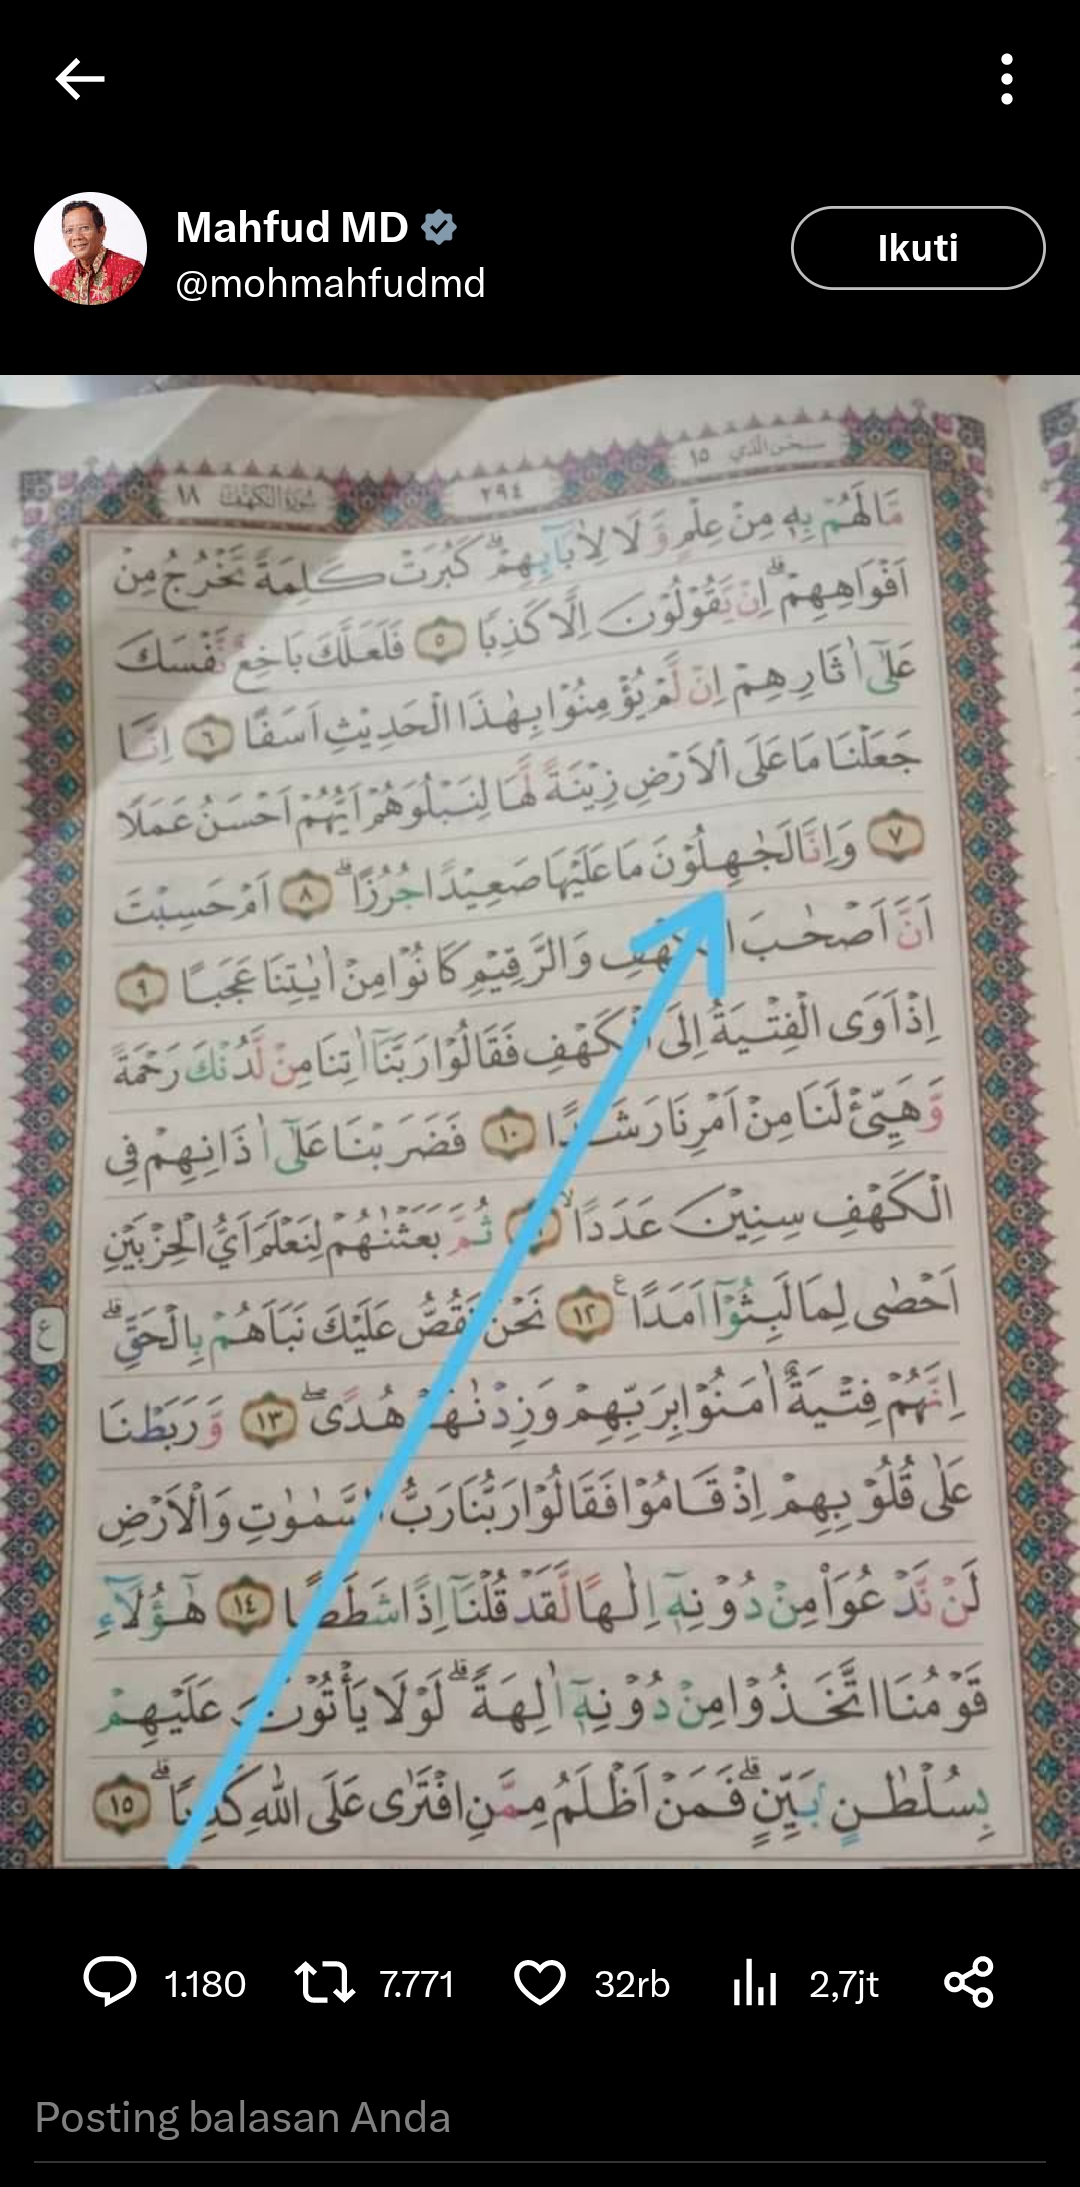 Mahfud MD
@mohmahfudmd
Ikuti
سبحن الذي ١٥
٢٩٤
سُوْرَةُ الْكَهْفِ ١٨
مَّا لَهُمْ بِهٖ مِنْ عِلْمٍ وَّلَا لِاٰبَاۤىِٕهِمْۗ كَبُرَتْ كَلِمَةً تَخْرُجُ مِنْ
اَفْوَاهِهِمْۗ اِنْ يَّقُوْلُوْنَ اِلَّا كَذِبًا ٥ فَلَعَلَّكَ بَاخِعٌ نَّفْسَكَ
عَلٰٓى اٰثَارِهِمْ اِنْ لَّمْ يُؤْمِنُوْا بِهٰذَا الْحَدِيْثِ اَسَفًا ٦ اِنَّا
جَعَلْنَا مَا عَلَى الْاَرْضِ زِيْنَةً لَّهَا لِنَبْلُوَهُمْ اَيُّهُمْ اَحْسَنُ عَمَلًا
٧ وَاِنَّا لَجٰهِلُوْنَ مَا عَلَيْهَا صَعِيْدًا جُرُزًاۗ ٨ اَمْ حَسِبْتَ
اَنَّ اَصْحٰبَ وَالرَّقِيْمِ كَانُوْا مِنْ اٰيٰتِنَا عَجَبًا ٩
اِذْ اَوَى الْفِتْيَةُ اِلَى الْكَهْفِ فَقَالُوْا رَبَّنَآ اٰتِنَا مِنْ لَّدُنْكَ رَحْمَةً
وَّهَيِّئْ لَنَا مِنْ اَمْرِنَا رَشَدًا ١٠ فَضَرَبْنَا عَلٰٓى اٰذَانِهِمْ فِى
الْكَهْفِ سِنِيْنَ عَدَدًاۙ ثُمَّ بَعَثْنٰهُمْ لِنَعْلَمَ اَيُّ الْحِزْبَيْنِ
اَحْصٰى لِمَا لَبِثُوْٓا اَمَدًا ࣖ ١٢ نَحْنُ نَقُصُّ عَلَيْكَ نَبَاَهُمْ بِالْحَقِّۗ
ع
اِنَّهُمْ فِتْيَةٌ اٰمَنُوْا بِرَبِّهِمْ وَزِدْنٰهُمْ هُدًىۖ ١٣ وَّرَبَطْنَا
عَلٰى قُلُوْبِهِمْ اِذْ قَامُوْا فَقَالُوْا رَبُّنَا رَبُّ السَّمٰوٰتِ وَالْاَرْضِ
لَنْ نَّدْعُوَا۟ مِنْ دُوْنِهٖٓ اِلٰهًا لَّقَدْ قُلْنَآ اِذًا شَطَطًا ١٤ هٰٓؤُلَاۤءِ
قَوْمُنَا اتَّخَذُوْا مِنْ دُوْنِهٖٓ اٰلِهَةًۗ لَوْلَا يَأْتُوْنَ عَلَيْهِمْ
بِسُلْطٰنٍ بَيِّنٍۗ فَمَنْ اَظْلَمُ مِمَّنِ افْتَرٰى عَلَى اللّٰهِ كَذِبًاۗ ١٥
1.180 7.771 32rb 2,7jt
Posting balasan Anda